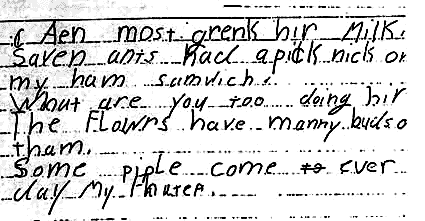 Aen most grenk hir Milk.
Saven ants Had apick nick on
my ham samvich.
What are you too doing hir
The Flowns have manny buds o
tham.
Some piple come to ever
day My